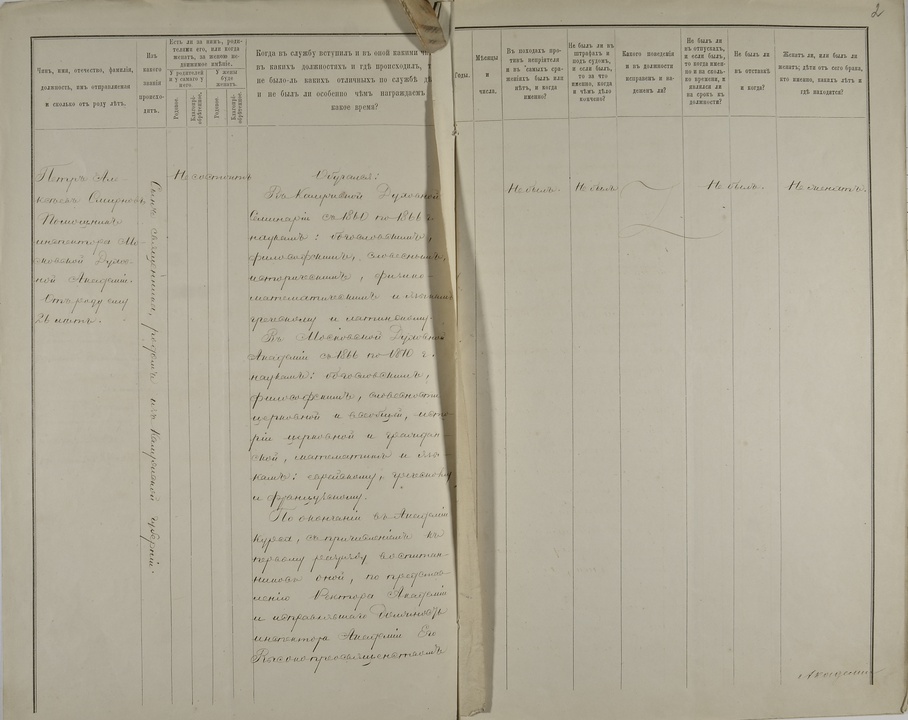 2
Чинъ, имя, отечество, фамилія,
должность, имъ отправляемая
и сколько отъ роду лѣтъ.
Изъ
какого
званія
происхо-
дитъ.
Есть ли за нимъ, роди-
телями его, или когда
женатъ, за женою не-
движимое имѣніе.
У родителей
и у самого у
него.
У жены
буде
женатъ.
Родовое.
Благопрі-
обрѣтенное.
Родовое
Благопрі-
обрѣтенное.
Когда въ службу вступилъ и въ оной какими
въ какихъ должностяхъ и гдѣ происходилъ,
не было-ль какихъ отличныхъ по службѣ
и не былъ ли особенно чѣмъ награждаемъ
какое время?
Годы.
Мѣсяцы
и
числа.
Въ походахъ про-
тивъ непріятеля
и въ самыхъ сра-
женіяхъ былъ или
нѣтъ, и когда
именно?
Не былъ ли въ
штрафахъ и
подъ судомъ,
и если былъ,
то за что
именно, когда
и чѣмъ дѣло
кончено?
Какого поведенія
и въ должности
исправенъ и на-
деженъ ли?
Не былъ ли
въ отпускахъ,
и если былъ,
то когда имен-
но и на сколь-
ко времени, и
явился ли
на срокъ къ
должности?
Не былъ ли
въ отставкѣ
и когда?
Женатъ ли, или былъ ли
женатъ; дѣти отъ сего брака,
кто именно, какихъ лѣтъ и
гдѣ находятся?
Петръ Але-
ксѣевъ Смирновъ
Помощникъ
инспектора Мо-
сковской Духов-
ной Академіи.
Отъ роду ему
26 лѣтъ.
Сынъ священника, родомъ изъ Калужской губерніи.
Не состоитъ
Обучался:
Въ Калужской Духовной
Семинаріи съ 1860 по 1866 г.
наукамъ: богословскимъ,
философскимъ, словеснымъ,
историческимъ, физико-
математическимъ и языкамъ
греческому и латинскому.
Въ Московской Духовной
Академіи съ 1866 по 1870 г.
наукамъ: богословскимъ,
философскимъ, словесности
церковной и всеобщей, исто-
ріи церковной и граждан-
ской, математикѣ и язы-
камъ: еврейскому, греческому
и французскому.
По окончаніи въ Академіи
курса, съ причисленіемъ къ
первому разряду воспитан-
никовъ оной, по представ-
ленію Ректора Академіи
и исправляющаго должность
инспектора Академіи Его
Высокопреосвященствомъ
Не былъ.
Не былъ
Не былъ.
Не женатъ.
Академіи